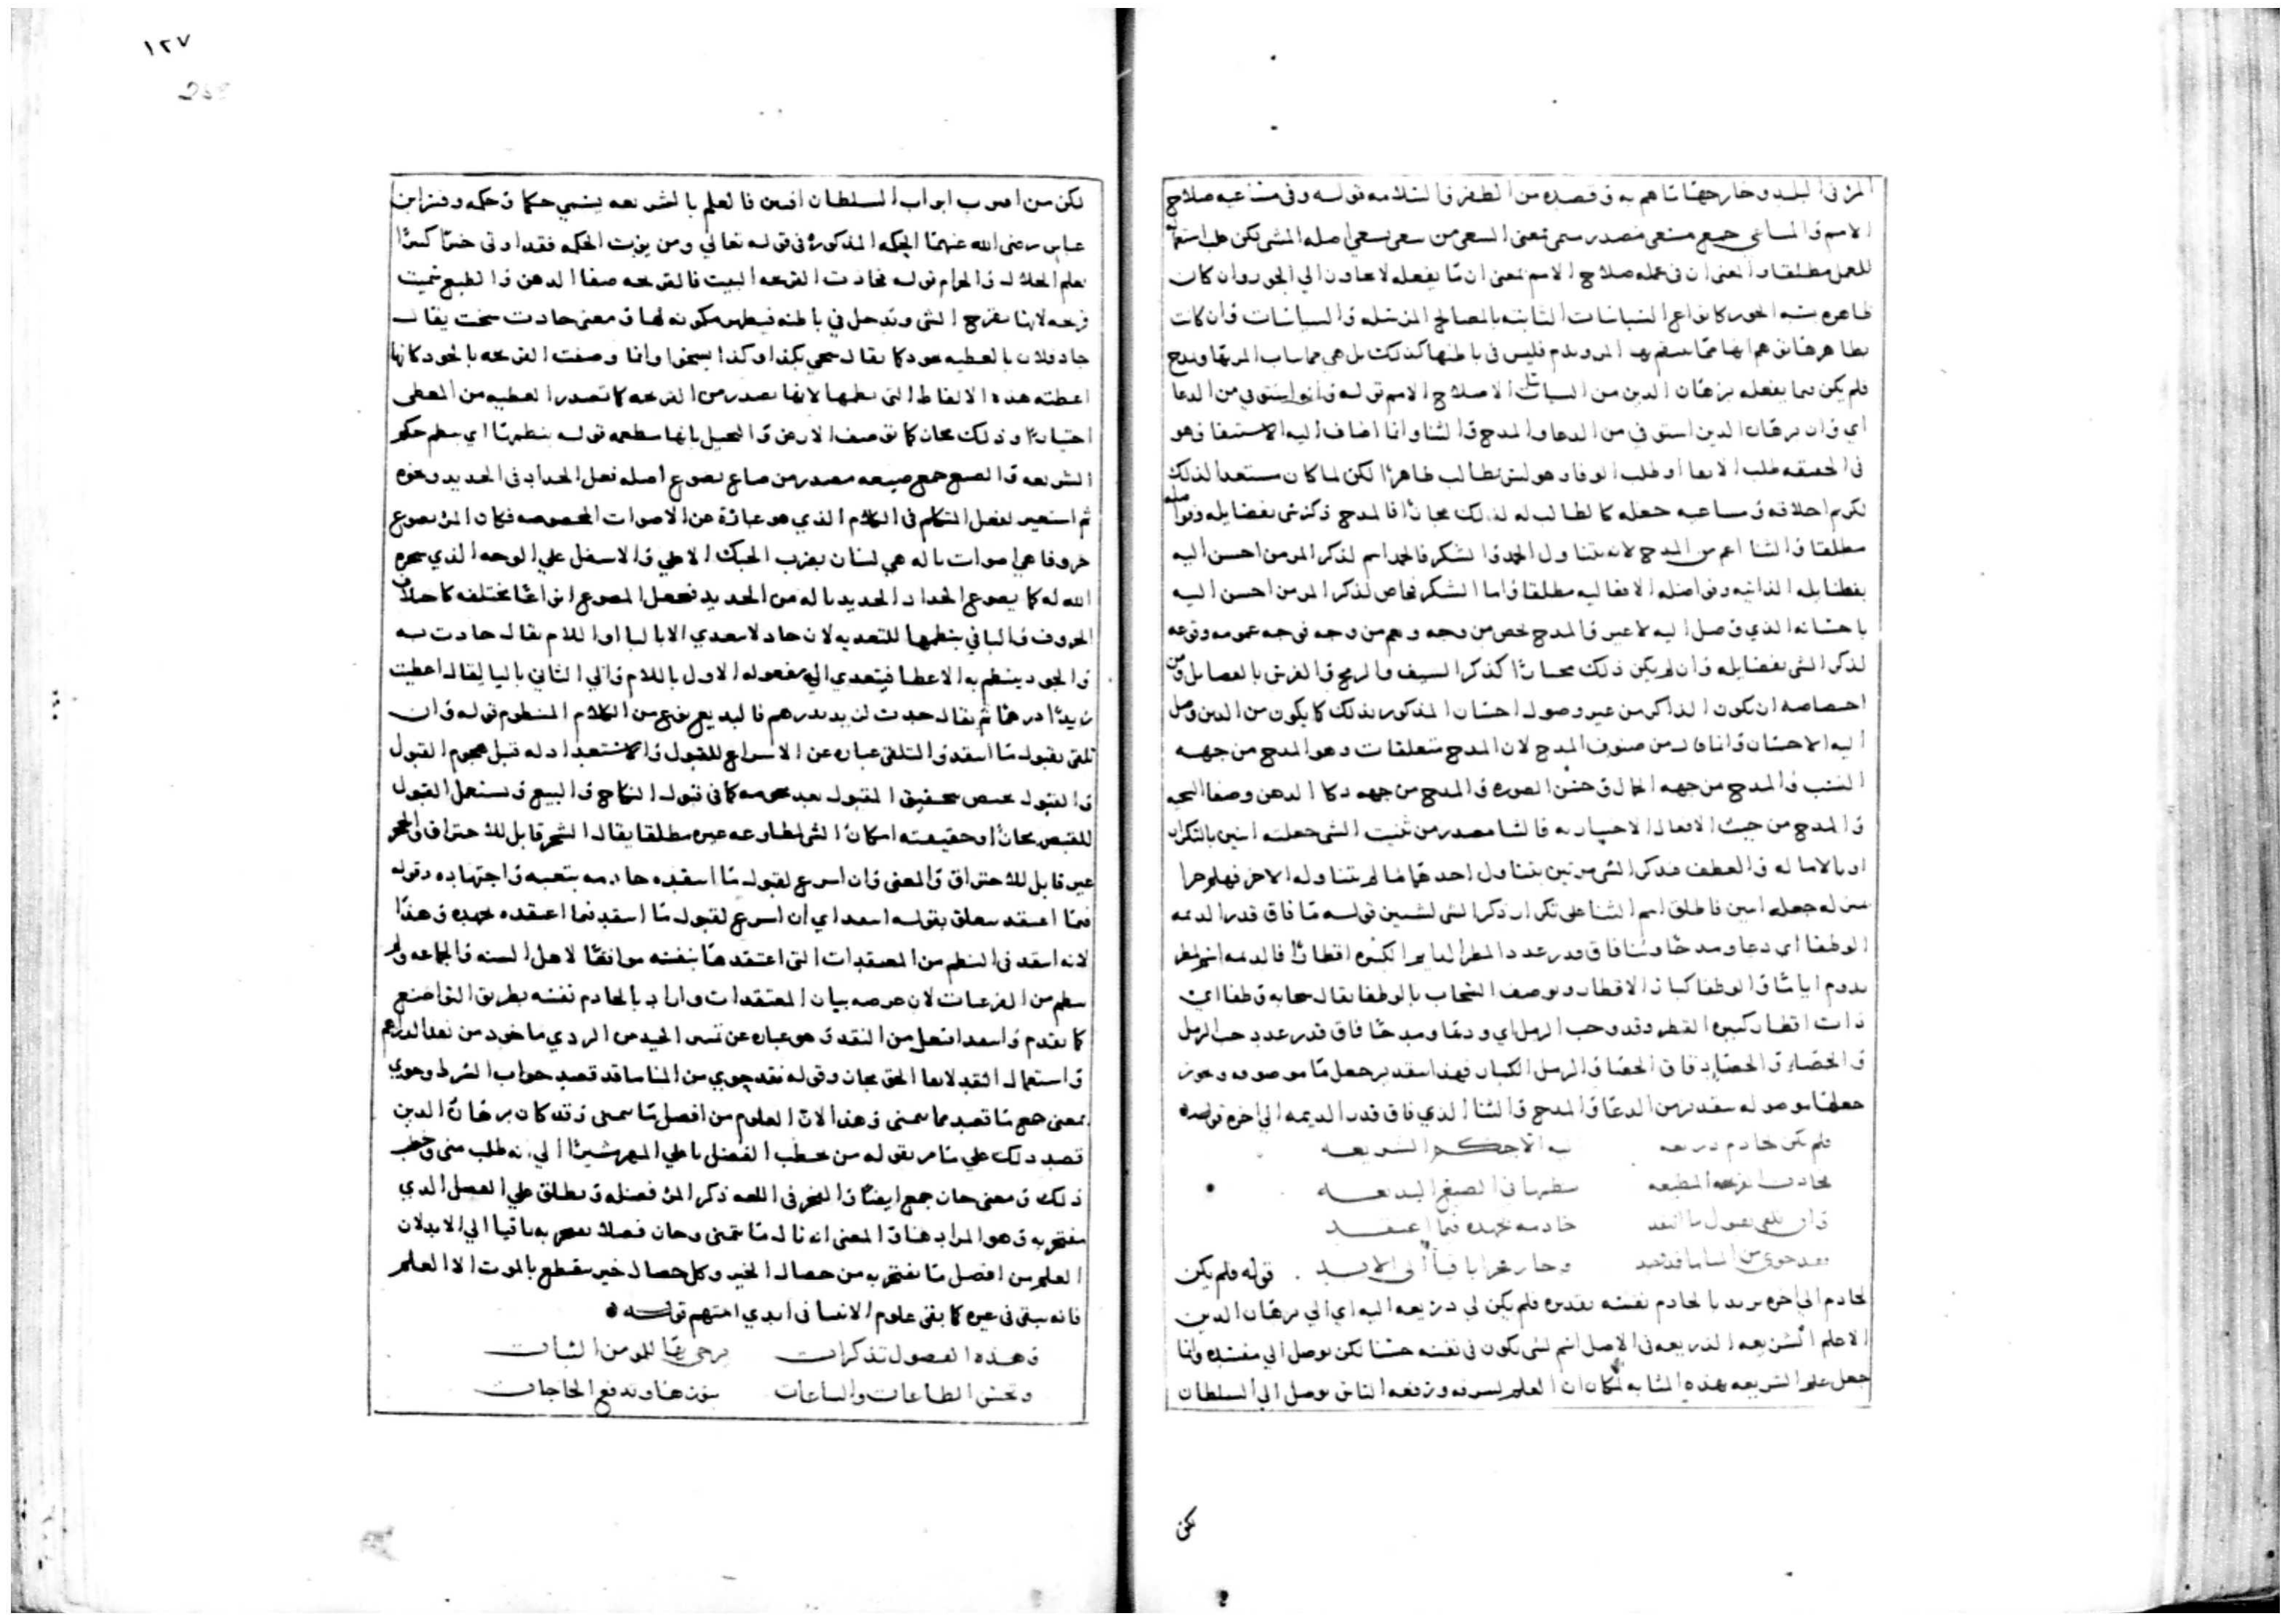 المرء في البلد وخارجها ما هم به وقصده من الظفر والسلامه قوله وفي مساعيه صلاح
الاسم والمساعي جمع مسعى مصدر سمي بمعنى السعي من سعى يسعى اصله المشي لكن غلب استعماله
للعمل مطلقا والمعنى ان في عمله صلاح الاسم بمعنى ان ما يفعله لا يعاون الي الجور وان كان
ظاهره يشبه الجور كانواع السياسات الثابته بالمصالح المرسله والسياسات وان كانت
فلم يكن فيما يفعله برهان الدين من السياسات الا صلاح الاسم قوله وانه استوفي من الدعا
اي وان برهان الدين استوفي من الدعا والمدح والثنا وانما اضاف اليه الاستيفا وهو
في الحقيقه طلب الايفا او طلب الوفا وهو ليس بطالب ظاهرا لكن لما كان مستعدا لذلك
لكرم اخلاقه ومساعيه جعله كالطالب له لذلك مجازا فالمدح ذكر شي بفضايله وفواضله
مطلقا والثنا اعم من المدح لانه يتناول الحمد والشكر فالحمد اسم لذكر المرء من احسن اليه
بفضايله الذاتيه وفواضله الافعاليه مطلقا واما الشكر فخاص لذكر المرء من احسن اليه
باحسانه الذي وصل اليه لا غير والمدح يخص من وجه ويعم من وجه فوجه عمومه وقوعه
لذكر الشي بفضايله وان لم يكن ذلك محسانا كذكر السيف والرمح والفرس بالفضايل ومن
اختصاصه ان يكون الذاكر من غير وصول احسان المذكور بذلك كما يكون من الذين وصل
اليه الاحسان وانما قال من صنوف المدح لان المدح متعلقات وهو المدح من جهه
النسب والمدح من جهه الجمال وحسن الصوره والمدح من جهه ذكا الذهن وصفا السجيه
والمدح من حيث الافعال الاختياريه فالثنا مصدر من ثنيت الشي جعلته اثنين بالتكرار
او بالاماله والعطف فذكر الشي مرتين يتناول احدهما ما لم يتناوله الاخر فهلم جرا
بمنزله جعله اثنين فاطلق اسم الثنا على تكرار ذكر الشي لشيين قوله ما فاق قدر الديمه
الوطفا اي دعا ومدحا وثنا فاق قدر عدد المطر الدايم الكثيره اقطارا فالديمه اسم لمطر
يدوم اياما والوطفا كبار الاقطار ويوصف السحاب بالوطفا يقال سحابه وطفا اي
ذات اقطار كبيره القطر وقدر حب الرمل اي ودعا ومدحا فاق قدر عدد حب الرمل
والحصا والحصا دقاق الحصا والرمل الكبار فهذا يتقدير جعل ما موصوفه ويجوز
جعلها موصوله بتقدير من الدعا والمدح والثنا الذي فاق قدر الديمه الي اخره قوله
فلم تكن لخادم ذريعه    ليه الا حكم الشريعه
تجادت القريحه المطيعه    بنظمها في الصيغ البديعه
وان تلقى بقبول ما انتقد    خادمه بجهده فيما اعتقد
فقد حوى من المنا ما قد قصد    وحاز فخرا باقيا الى الابد    قوله فلم يكن
لخادم الي اخره يريد بالخادم نفسه بتقدير فلم يكن لي ذريعه اليه اي الي برهان الدين
الا علم الشريعه والذريعه في الاصل اسم لشي يكون في نفسه حسنا لكن يوصل الي مفسده وانما
جعل علم الشريعه بهذه المثابه لمكان ان العلم لشرفه ورفعه الناس يوصل الي السلطان
لكن
١٢٧
لكن من اقرب ابواب السلطان افتتن فالعلم بالشريعه يسمي حكما وحكمه وفسر ابن
عباس رضى الله عنهما الحكمه المذكوره في قوله تعالي ومن يؤت الحكمه فقد اوتي خيرا كثيرا
بعلم الحلال والحرام قوله تجادت القريحه البيت فالقريحه صفا الذهن والطبع سميت
قريحه لانها تقرح الشي وتدخل في باطنه فيظهر مكنونه لها ومعنى جادت سخت يقال
جاد فلان بالعطيه يجود كما يقال سخي بكذا وكذا يسخو وانما وصفت القريحه بالجود كانها
اعطته هذه الالفاظ التي نظمها لانها تصدر من القريحه كما تصدر العطيه من المعطي
الشريعه والصيغ جمع صيغه مصدر من صاغ يصوغ اصله فعل الحداد في الحديد ونحوه
ثم استعير لفعل المتكلم في الكلام الذي هو عبارة عن الاصوات المخصوصه فكان المرء يصوغ
حروفا هي اصوات باله هي لسان بضرب الحنك الاعلي والاسفل علي الوجه الذي سخره
الله له كما يصوغ الحداد الحديد باله من الحديد فجعل المصوغ انواعا مختلفه كاختلاف
الحروف والبا في بنظمها للتعديه لان جاد لا يتعدي الا بالبا او اللام يقال جادت به
والجود ينظم به الاعطا فيتعدي الي مفعوله الاول باللام والي الثاني بالبا يقال اعطيت
زيدا درهما ثم يقال جدت لزيد بدرهم فالبديع نوع من الكلام المنظوم قوله وان
تلقى بقبول ما انتقد والتلقي عباره عن الاسراع للقبول والاستعداد له قبل هجوم القبول
غير قابل للاحتراق والمعنى وان اسرع لقبول ما انتقده خادمه بتعبه واجتهاده وقوله
فيما اعتقد يتعلق بقوله انتقد اي ان اسرع لقبول ما انتقد فيما اعتقده بجهده وهذا
لانه انتقد في النظم من المعتقدات التي اعتقدها بنفسه موافقا لاهل السنه والجماعه ولم
ينظم من الفرعيات لان غرضه بيان المعتقدات واراد بالخادم نفسه بطريق التواضع
كما تقدم وانتقد افتعل من النقد وهو عباره عن تمييز الجيد من الردي ماخوذ من نقد الدراهم
واستعمال النقد لانتقا الحق مجاز وقوله فقد حوي من المنا ما قد قصد جواب الشرط وحوي
بمعنى جمع ما قصد مما يتمنى وهذا لان العلوم من افضل ما يتمنى وقد كان برهان الدين
قصد ذلك علي ما مر بقوله من خطب الفضل باعلي المهر مشيرا الي انه طلب منى وخطب
ذلك ومعنى حاز جمع ايضا والفخر في اللغه ذكر المرء فضله ويطلق علي الفضل الذي
يفتخر به وهو المراد هنا والمعنى انه نال ما يتمنى وحاز فضلا يفتخر به باقيا الي الابد لان
العلم من افضل ما يفتخر به من خصال الخير وكل خصال خير ينقطع بالموت الا العلم
فانه يبقى في غيره كما بقي علوم الانبيا في ايدي امتهم قوله
وهذه الفصول تذكرات    يرجى بها للمومن الثبات
وتحسن الطاعات والساعات    بنورها وتدفع الحاجات